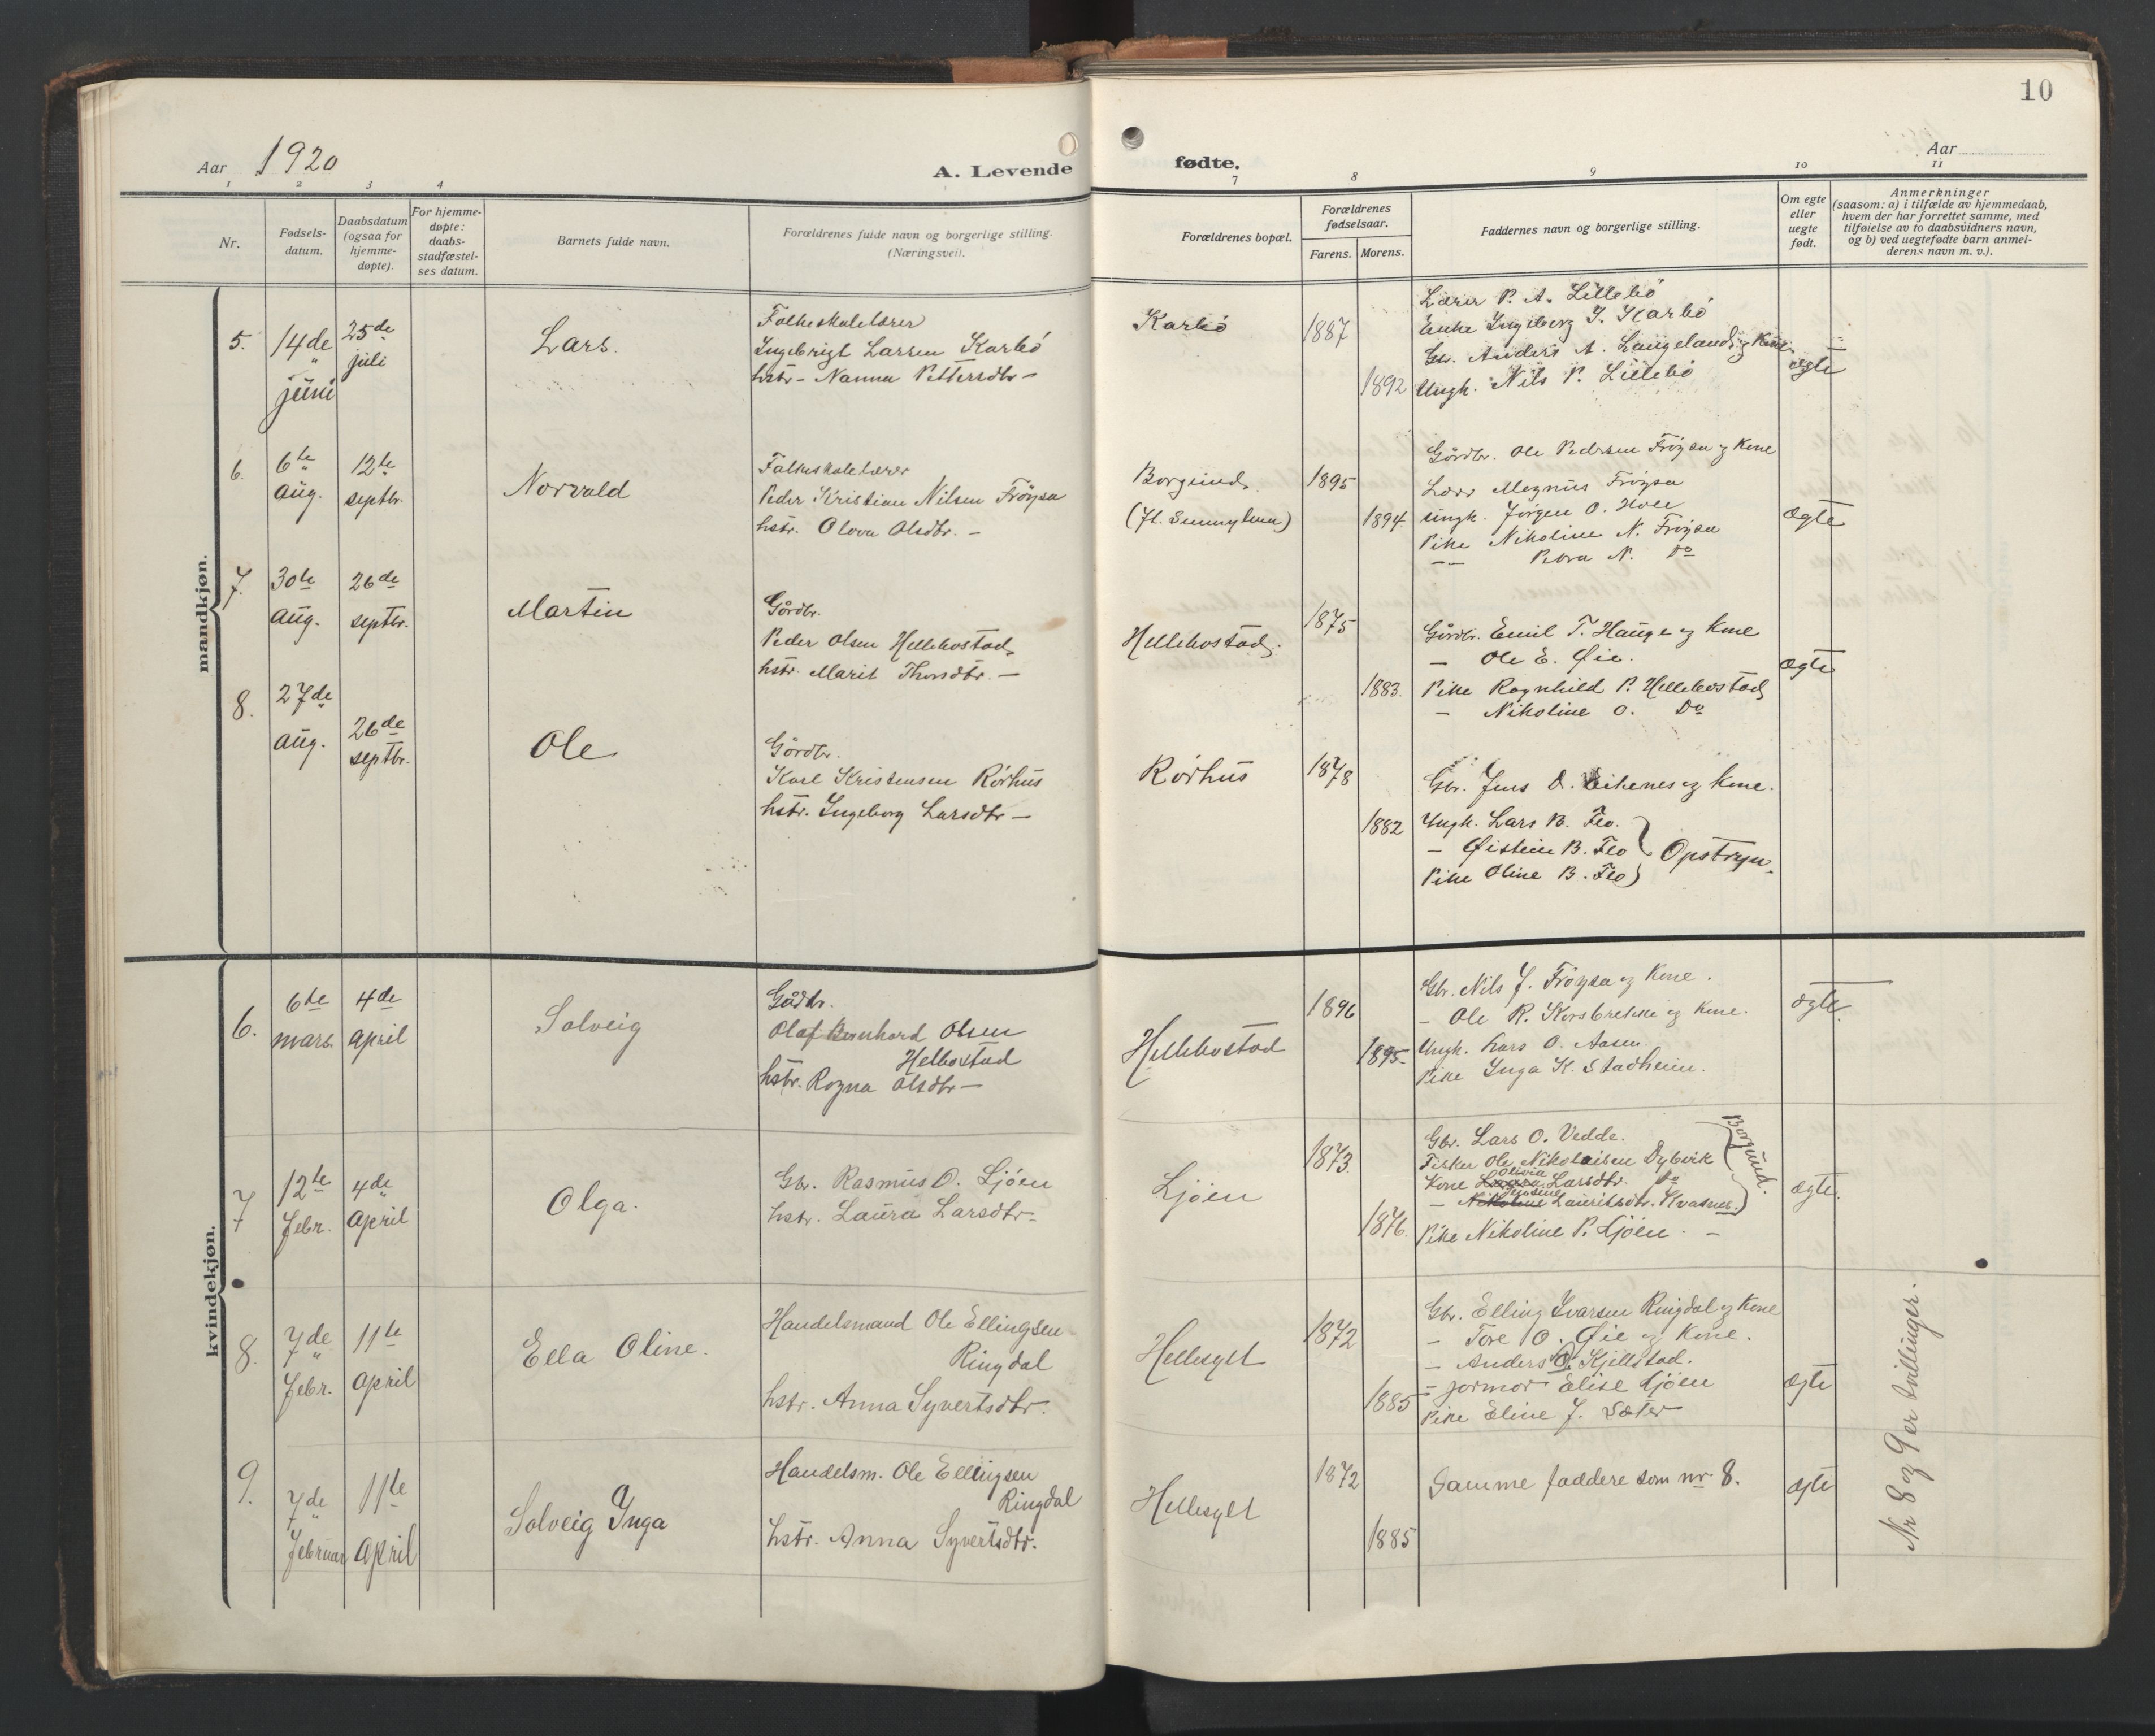 10
Aar 1920
A. Levende
fødte.
Aar
1 2 3 4 7 8 9 10 11
Nr.
Fødsels-
datum.
Daabsdatum
(ogsaa for
hjemme-
døpte).
For hjemme-
døpte:
daabs-
stadfæstel-
ses datum.
Barnets fulde navn.
Forældrenes fulde navn og borgerlige stilling.
(Næringsvei).
Forældrenes bopæl.
Forældrenes
fødselsaar.
Farens. Morens.
Faddernes navn og borgerlige stilling.
Om egte
eller
uegte
født.
Anmerkninger
(saasom: a) i tilfælde av hjemmedaab,
hvem der har forrettet samme, med
tilføielse av to daabsvidners navn,
og b) ved uegtefødte barn anmel-
derens navn m. v.).
mandkjøn.
5.
14de
juni
25de
juli
Lars.
Folkeskolelærer
Ingebrigt Larsen Karbö
hstr. Nanna Pettersdtr. —
Karbö
1887
1892
Lærer P. A. Lillebö
Enke Ingeborg J. Karbö
Gbr. Anders A. Langeland og Kone
Ungk. Nils P. Lillebö
ægte
6.
6te
aug.
12te
septbr.
Norvald
Folkeskolelærer
Peder Kristian Nilsen Fröysa
hstr. Olova Olsdtr. —
Borgund
1895
1894.
Gårdbr. Ole Pedersen Fröysa og Kone
Lærer Magnus Fröysa
Ungk. Jörgen O. Hole
Pike Nikoline N. Fröysa
— Petra N. Do
ægte
7.
30te
aug.
26de
septbr.
Martin
Gårdbr.
Peder Olsen Hellebostad
hstr. Marit Thorsdtr. —
Hellebostad.
1875
1883.
Gårdbr. Emil T. Hauge og Kone
— Ole E. Øie.
Pike Ragnhild P. Hellebostad
— Nikoline O. Do
ægte
8.
27de
aug.
26de
septbr.
Ole
Gårdbr.
Karl Kristensen Rörhus
hstr. Ingeborg Larsdtr —
Rörhus
1878
1882
Gbr. Jens D. Eikenes og Kone.
Ungk. Lars B. Flo.
— Øistein B. Flo
Pike Oline B. Flo
Opstryn.
kvindekjøn.
6.
6te
mars
4de
april
Solveig
Gådbr.
Olaf Bernhard Olsen
Helbostad
hstr. Ragna Olsdtr —
Hellebostad
1896
1895.
Gbr. Nils J. Fröysa og Kone.
— Ole R. Korsbrekke og Kone.
Ungk. Lars O. Aasen.
Pike Inga K. Stadheim.
ægte.
7
12te
febr.
4de
april
Olga.
Gbr. Rasmus O. Ljöen
hstr. Laura Larsdtr. —
Ljöen
1873.
1876.
Gbr. Lars O. Vedde.
Fisker Ole Nikolaisen Dybvik
Kone Olivia Larsdtr. Do
— Jensine Lauritsdtr. Kvasnes.
Borgund.
Pike Nikoline P. Ljöen. —
ægte.
8.
7de
febr.
11te
april
Ella Oline.
Handelsmand Ole Ellingsen
Ringdal
hstr. Anna Syvertsdtr.
Hellesylt
1872
1885
Gbr. Elling Ivarsen Ringdal og Kone
— Tore O. Øie og Kone.
— Anders O. Kjellstad.
— jormor Elise Ljöen
Pike Eline J. Sæter
ægte
9.
7de
februar
11te
april
Solveig Inga
Handelsm. Ole Ellingsen
Ringdal
hstr. Anna Syvertsdtr.
Hellesylt
1872
1885
Samme faddere som nr 8.
ægte
Nr 8 og 9 er tvillinger.